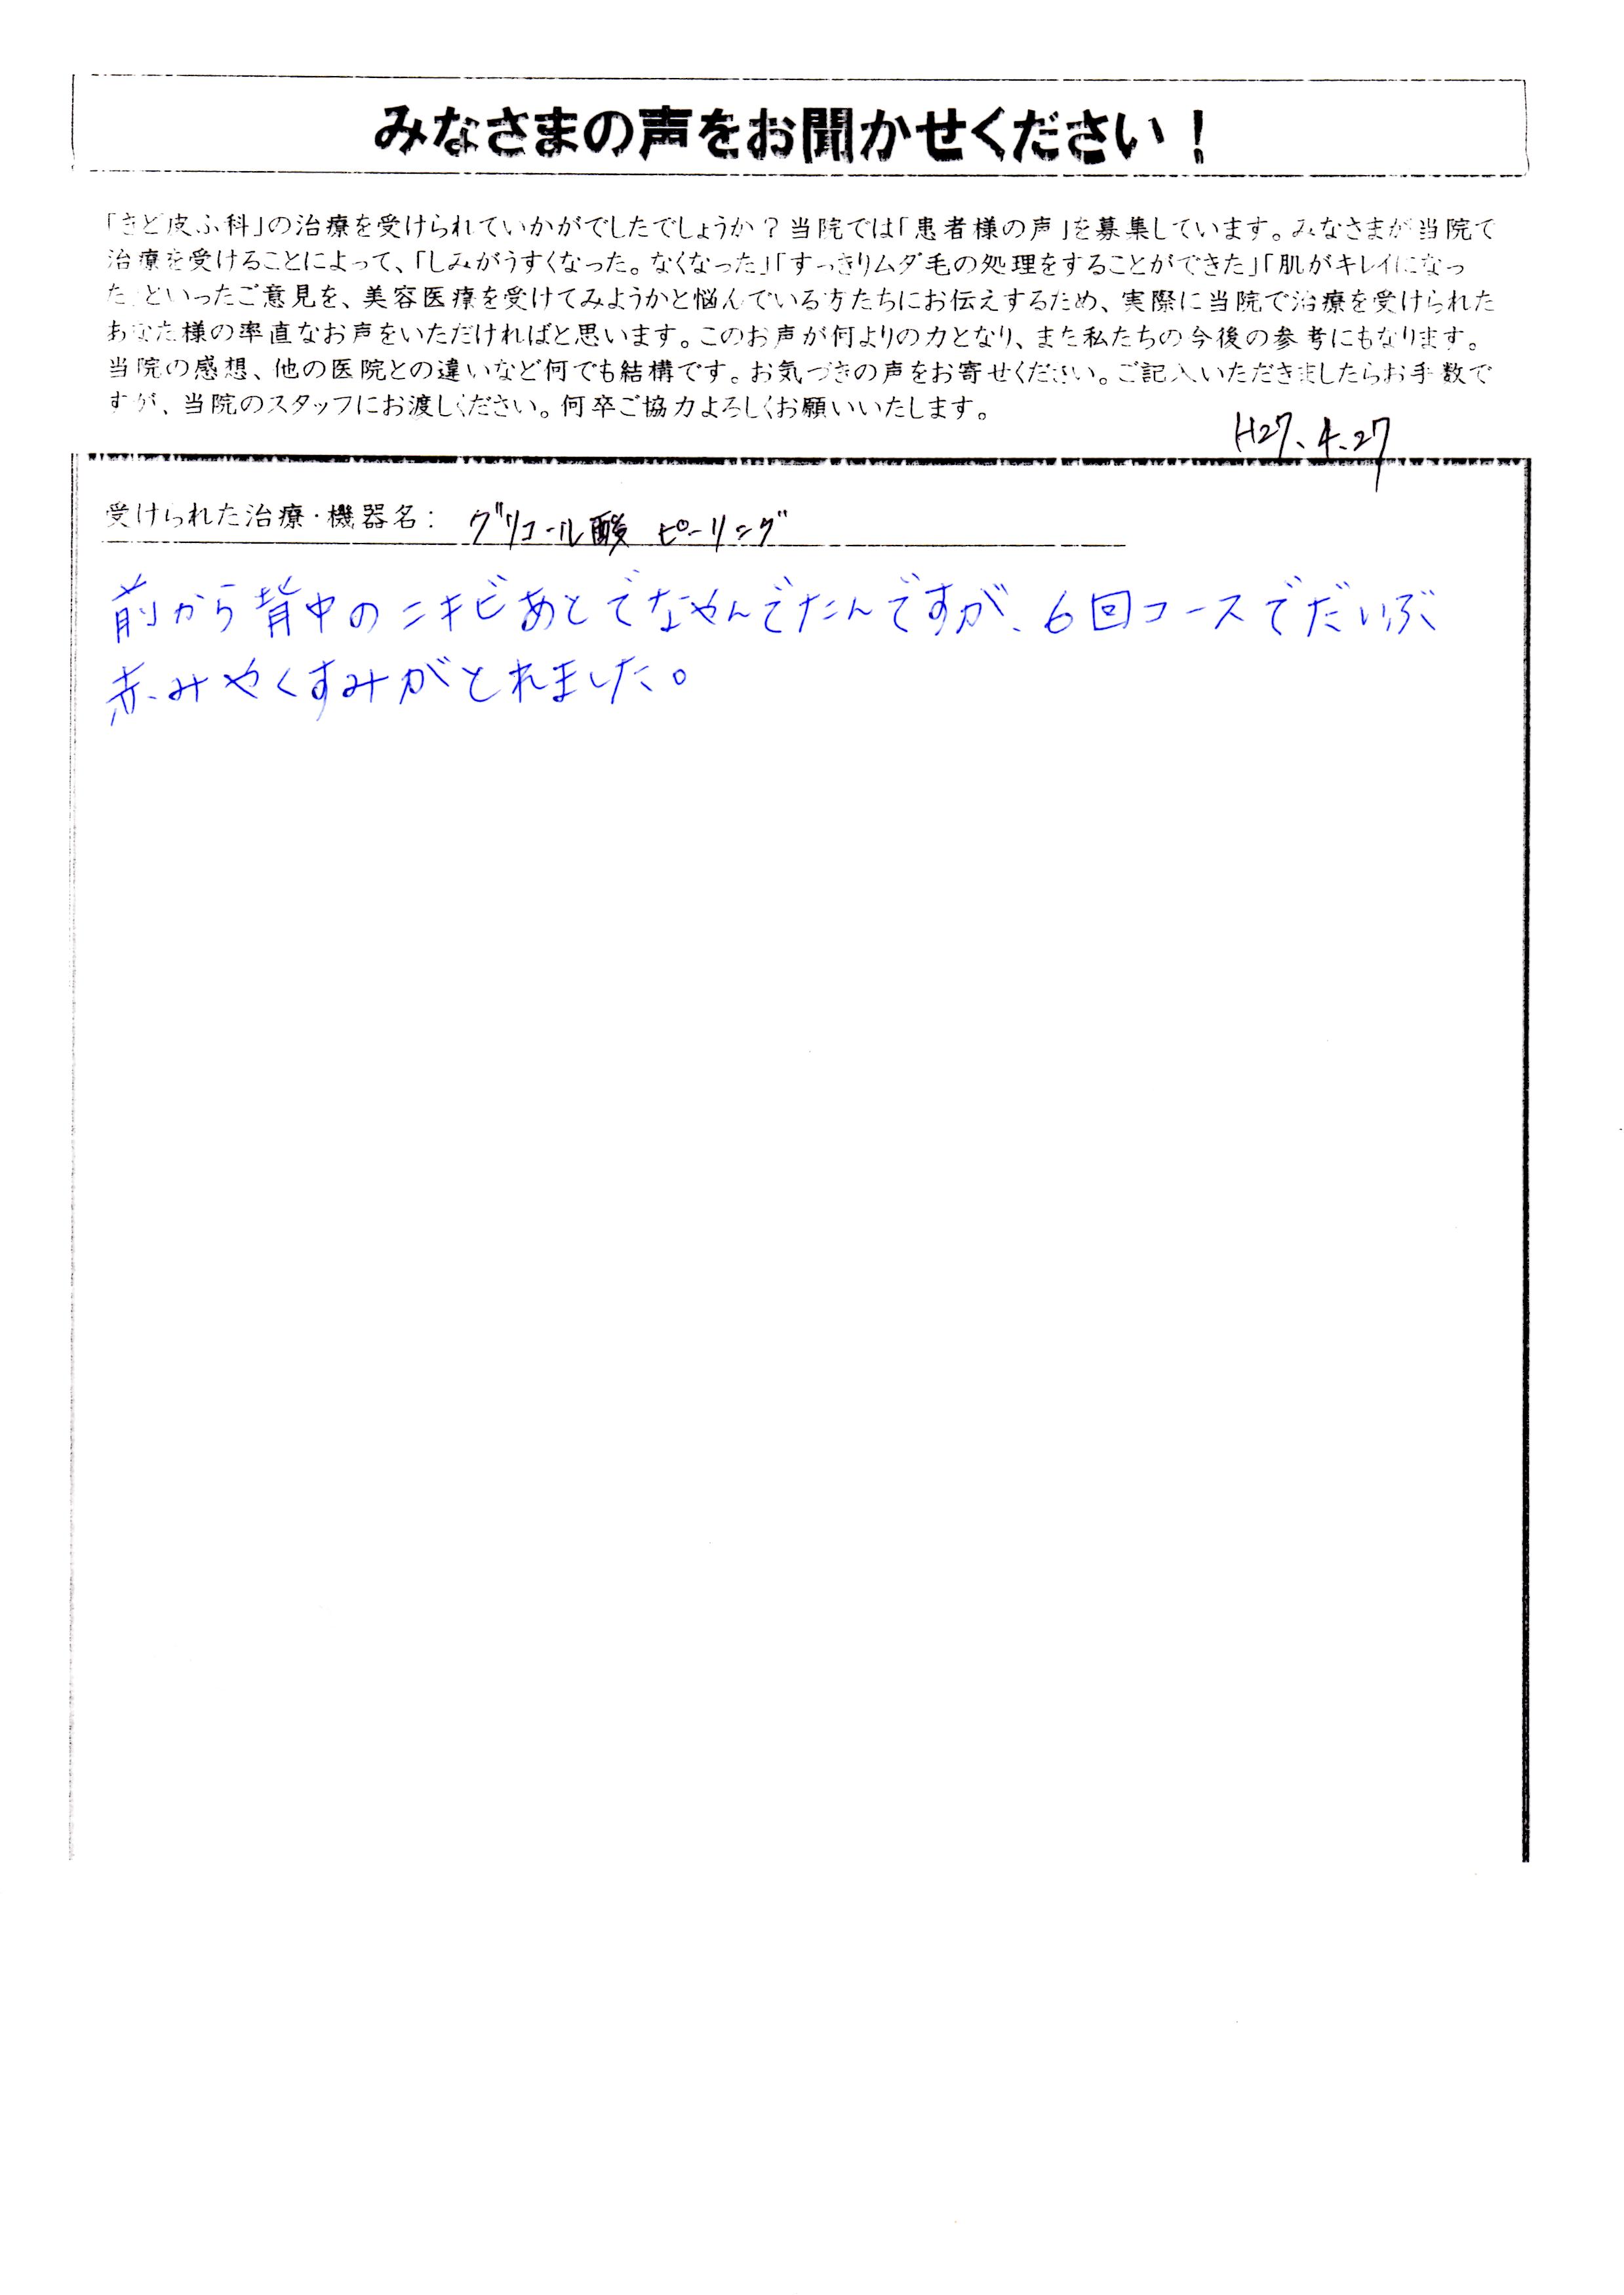 みなさまの声をお聞かせください！
「きど皮ふ科」の治療を受けられていかがでしたでしょうか？当院では「患者様の声」を募集しています。みなさまが当院で
治療を受けることによって、「しみがうすくなった。なくなった」「すっきりムダ毛の処理をすることができた」「肌がキレイになっ
た」といったご意見を、美容医療を受けてみようかと悩んでいる方たちにお伝えするため、実際に当院で治療を受けられた
あなた様の率直なお声をいただければと思います。このお声が何よりの力となり、また私たちの今後の参考にもなります。
当院の感想、他の医院との違いなど何でも結構です。お気づきの声をお寄せください。ご記入いただきましたらお手数で
すが、当院のスタッフにお渡しください。何卒ご協力よろしくお願いいたします。
H27.4.27
受けられた治療・機器名： グリコール酸 ピーリング
前から背中のニキビあとでなやんでたんですが、6回コースでだいぶ
赤みやくすみがとれました。